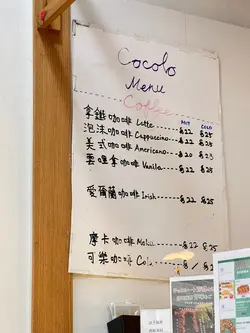 Cocolo
Menu
Coffee
HOT COLD
拿鐵咖啡 Latte 22 25
泡沫咖啡 Cappuccino 22 25
美式咖啡 Americano 20 23
雲哩拿咖啡 Vanilla 22 25
愛爾蘭咖啡 Irish 22 25
摩卡咖啡 22 25
可樂咖啡 / 25